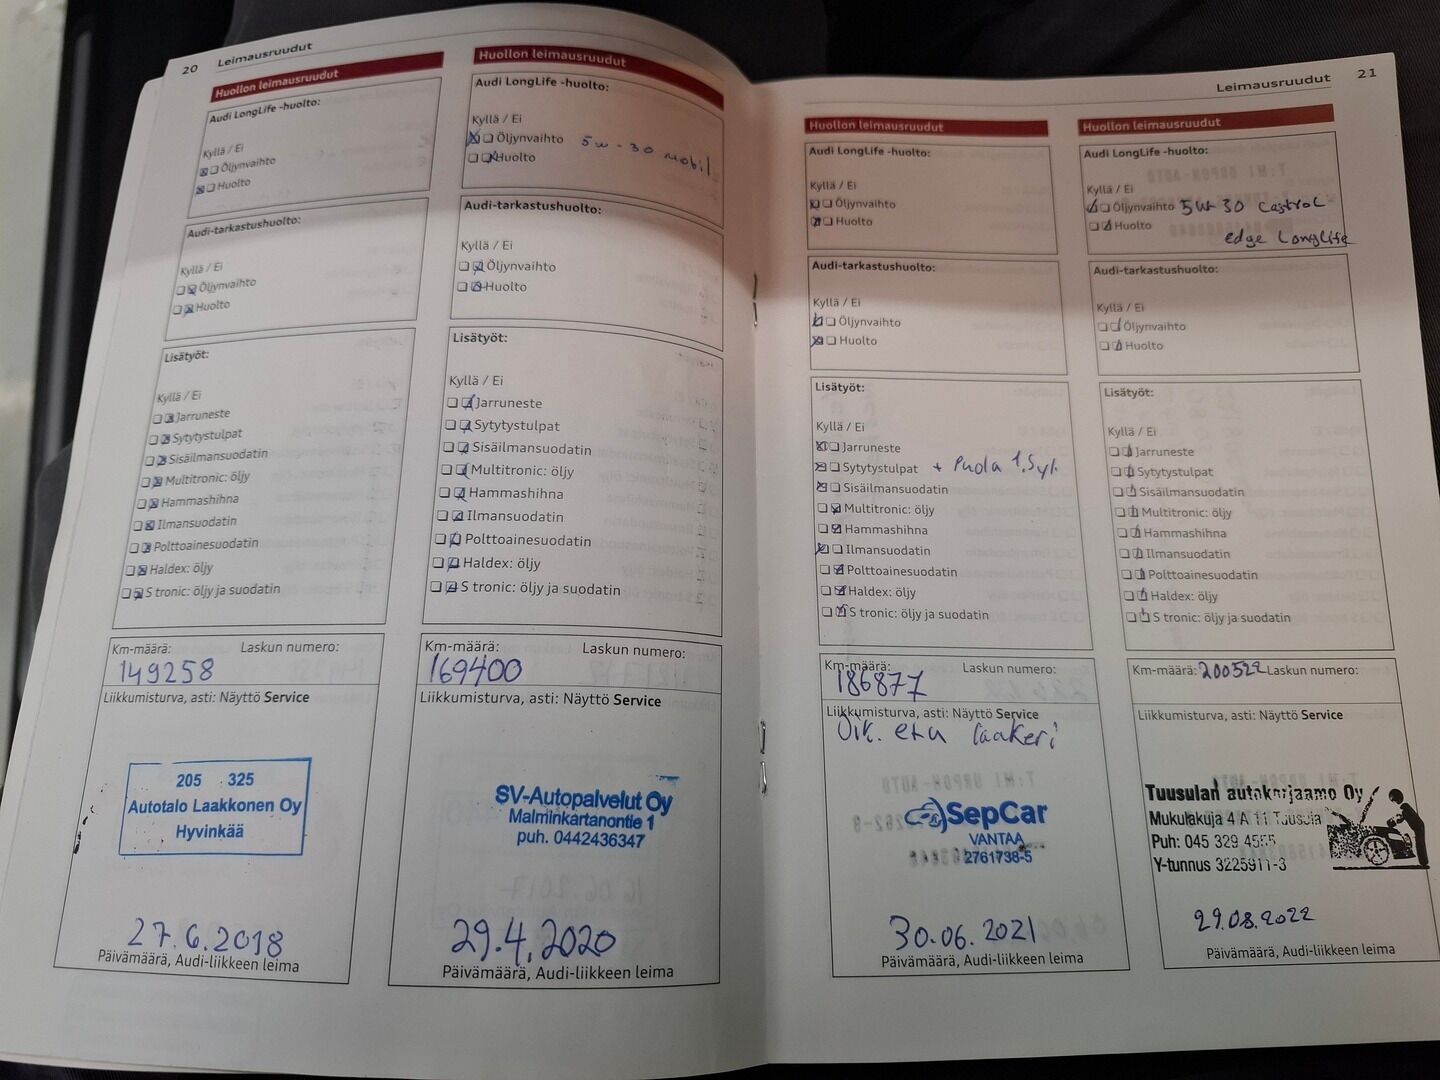 20 Leimausruudut
Huollon leimausruudut
Audi LongLife -huolto:
Kyllä / Ei
Öljynvaihto
Huolto
Audi-tarkastushuolto:
Kyllä / Ei
Öljynvaihto
Huolto
Lisätyöt:
Kyllä / Ei
Jarruneste
Sytytystulpat
Sisäilmansuodatin
Multitronic: öljy
Hammashihna
Ilmansuodatin
Polttoainesuodatin
Haldex: öljy
S tronic: öljy ja suodatin
Km-määrä: Laskun numero:
149258
Liikkumisturva, asti: Näyttö Service
205 325
Autotalo Laakkonen Oy
Hyvinkää
27.6.2018
Päivämäärä, Audi-liikkeen leima
Huollon leimausruudut
Audi LongLife -huolto:
Kyllä / Ei
Öljynvaihto 5w-30 mobil
Huolto
Audi-tarkastushuolto:
Kyllä / Ei
Öljynvaihto
Huolto
Lisätyöt:
Kyllä / Ei
Jarruneste
Sytytystulpat
Sisäilmansuodatin
Multitronic: öljy
Hammashihna
Ilmansuodatin
Polttoainesuodatin
Haldex: öljy
S tronic: öljy ja suodatin
Km-määrä: Laskun numero:
169400
Liikkumisturva, asti: Näyttö Service
SV-Autopalvelut Oy
Malminkartanontie 1
puh. 0442436347
29.4.2020
Päivämäärä, Audi-liikkeen leima
Leimausruudut 21
Huollon leimausruudut
Audi LongLife -huolto:
Kyllä / Ei
Öljynvaihto
Huolto
Audi-tarkastushuolto:
Kyllä / Ei
Öljynvaihto
Huolto
Lisätyöt:
Kyllä / Ei
Jarruneste
Sytytystulpat + Puola 1.syl.
Sisäilmansuodatin
Multitronic: öljy
Hammashihna
Ilmansuodatin
Polttoainesuodatin
Haldex: öljy
S tronic: öljy ja suodatin
Km-määrä: Laskun numero:
186877
Liikkumisturva, asti: Näyttö Service
Oik. etu laakeri
SepCar
VANTAA
2761738-5
30.06.2021
Päivämäärä, Audi-liikkeen leima
Huollon leimausruudut
Audi LongLife -huolto:
Kyllä / Ei
Öljynvaihto 5w-30 castrol
Huolto edge Longlife
Audi-tarkastushuolto:
Kyllä / Ei
Öljynvaihto
Huolto
Lisätyöt:
Kyllä / Ei
Jarruneste
Sytytystulpat
Sisäilmansuodatin
Multitronic: öljy
Hammashihna
Ilmansuodatin
Polttoainesuodatin
Haldex: öljy
S tronic: öljy ja suodatin
Km-määrä: 200522 Laskun numero:
Liikkumisturva, asti: Näyttö Service
Tuusulan autokorjaamo Oy
Mukulakuja 4 A 11 Tuusula
Puh: 045 329 4555
Y-tunnus 3225911-3
29.08.2022
Päivämäärä, Audi-liikkeen leima